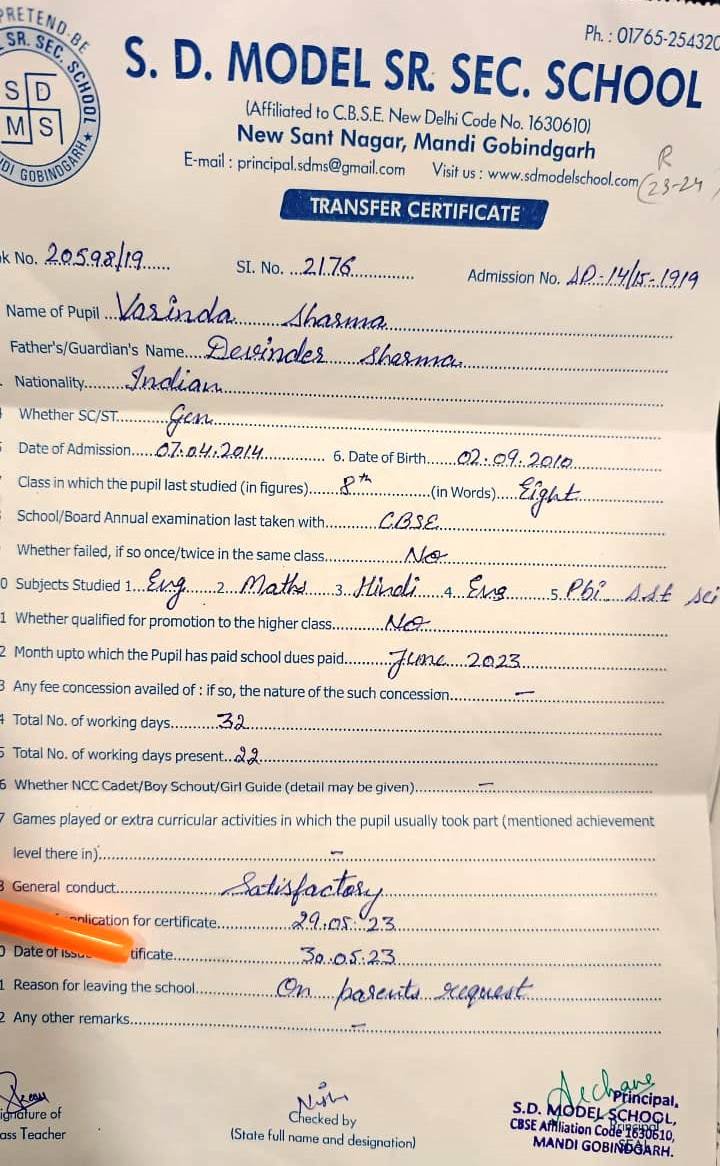 PRETEND-BE
SR. SEC. SCHOOL
S D
M S
DI GOBINDGARH ★
Ph. : 01765-254320
S. D. MODEL SR. SEC. SCHOOL
(Affiliated to C.B.S.E. New Delhi Code No. 1630610)
New Sant Nagar, Mandi Gobindgarh
E-mail : principal.sdms@gmail.com Visit us : www.sdmodelschool.com
R
(23-24)
TRANSFER CERTIFICATE
k No. 20598/19 SI. No. 2176 Admission No. SD-14/15-1919
Name of Pupil Varinda Sharma
Father's/Guardian's Name Devinder Sharma
Nationality Indian
Whether SC/ST Gen
Date of Admission 07.04.2014 6. Date of Birth 02.09.2010
Class in which the pupil last studied (in figures) 8th (in Words) Eight
School/Board Annual examination last taken with CBSE
Whether failed, if so once/twice in the same class No
0 Subjects Studied 1. Eng 2. Maths 3. Hindi 4. Eng 5. Pbi SSt Sci
1 Whether qualified for promotion to the higher class No
2 Month upto which the Pupil has paid school dues paid June 2023
3 Any fee concession availed of : if so, the nature of the such concession –
4 Total No. of working days 32
5 Total No. of working days present 22
6 Whether NCC Cadet/Boy Schout/Girl Guide (detail may be given) –
7 Games played or extra curricular activities in which the pupil usually took part (mentioned achievement
level there in) –
8 General conduct Satisfactory
application for certificate 29.05.23
0 Date of issue tificate 30.05.23
1 Reason for leaving the school On parents request
2 Any other remarks –
ignature of
ass Teacher
Checked by
(State full name and designation)
Principal,
S.D. MODEL SCHOOL,
CBSE Affiliation Code 1630610,
MANDI GOBINDGARH.